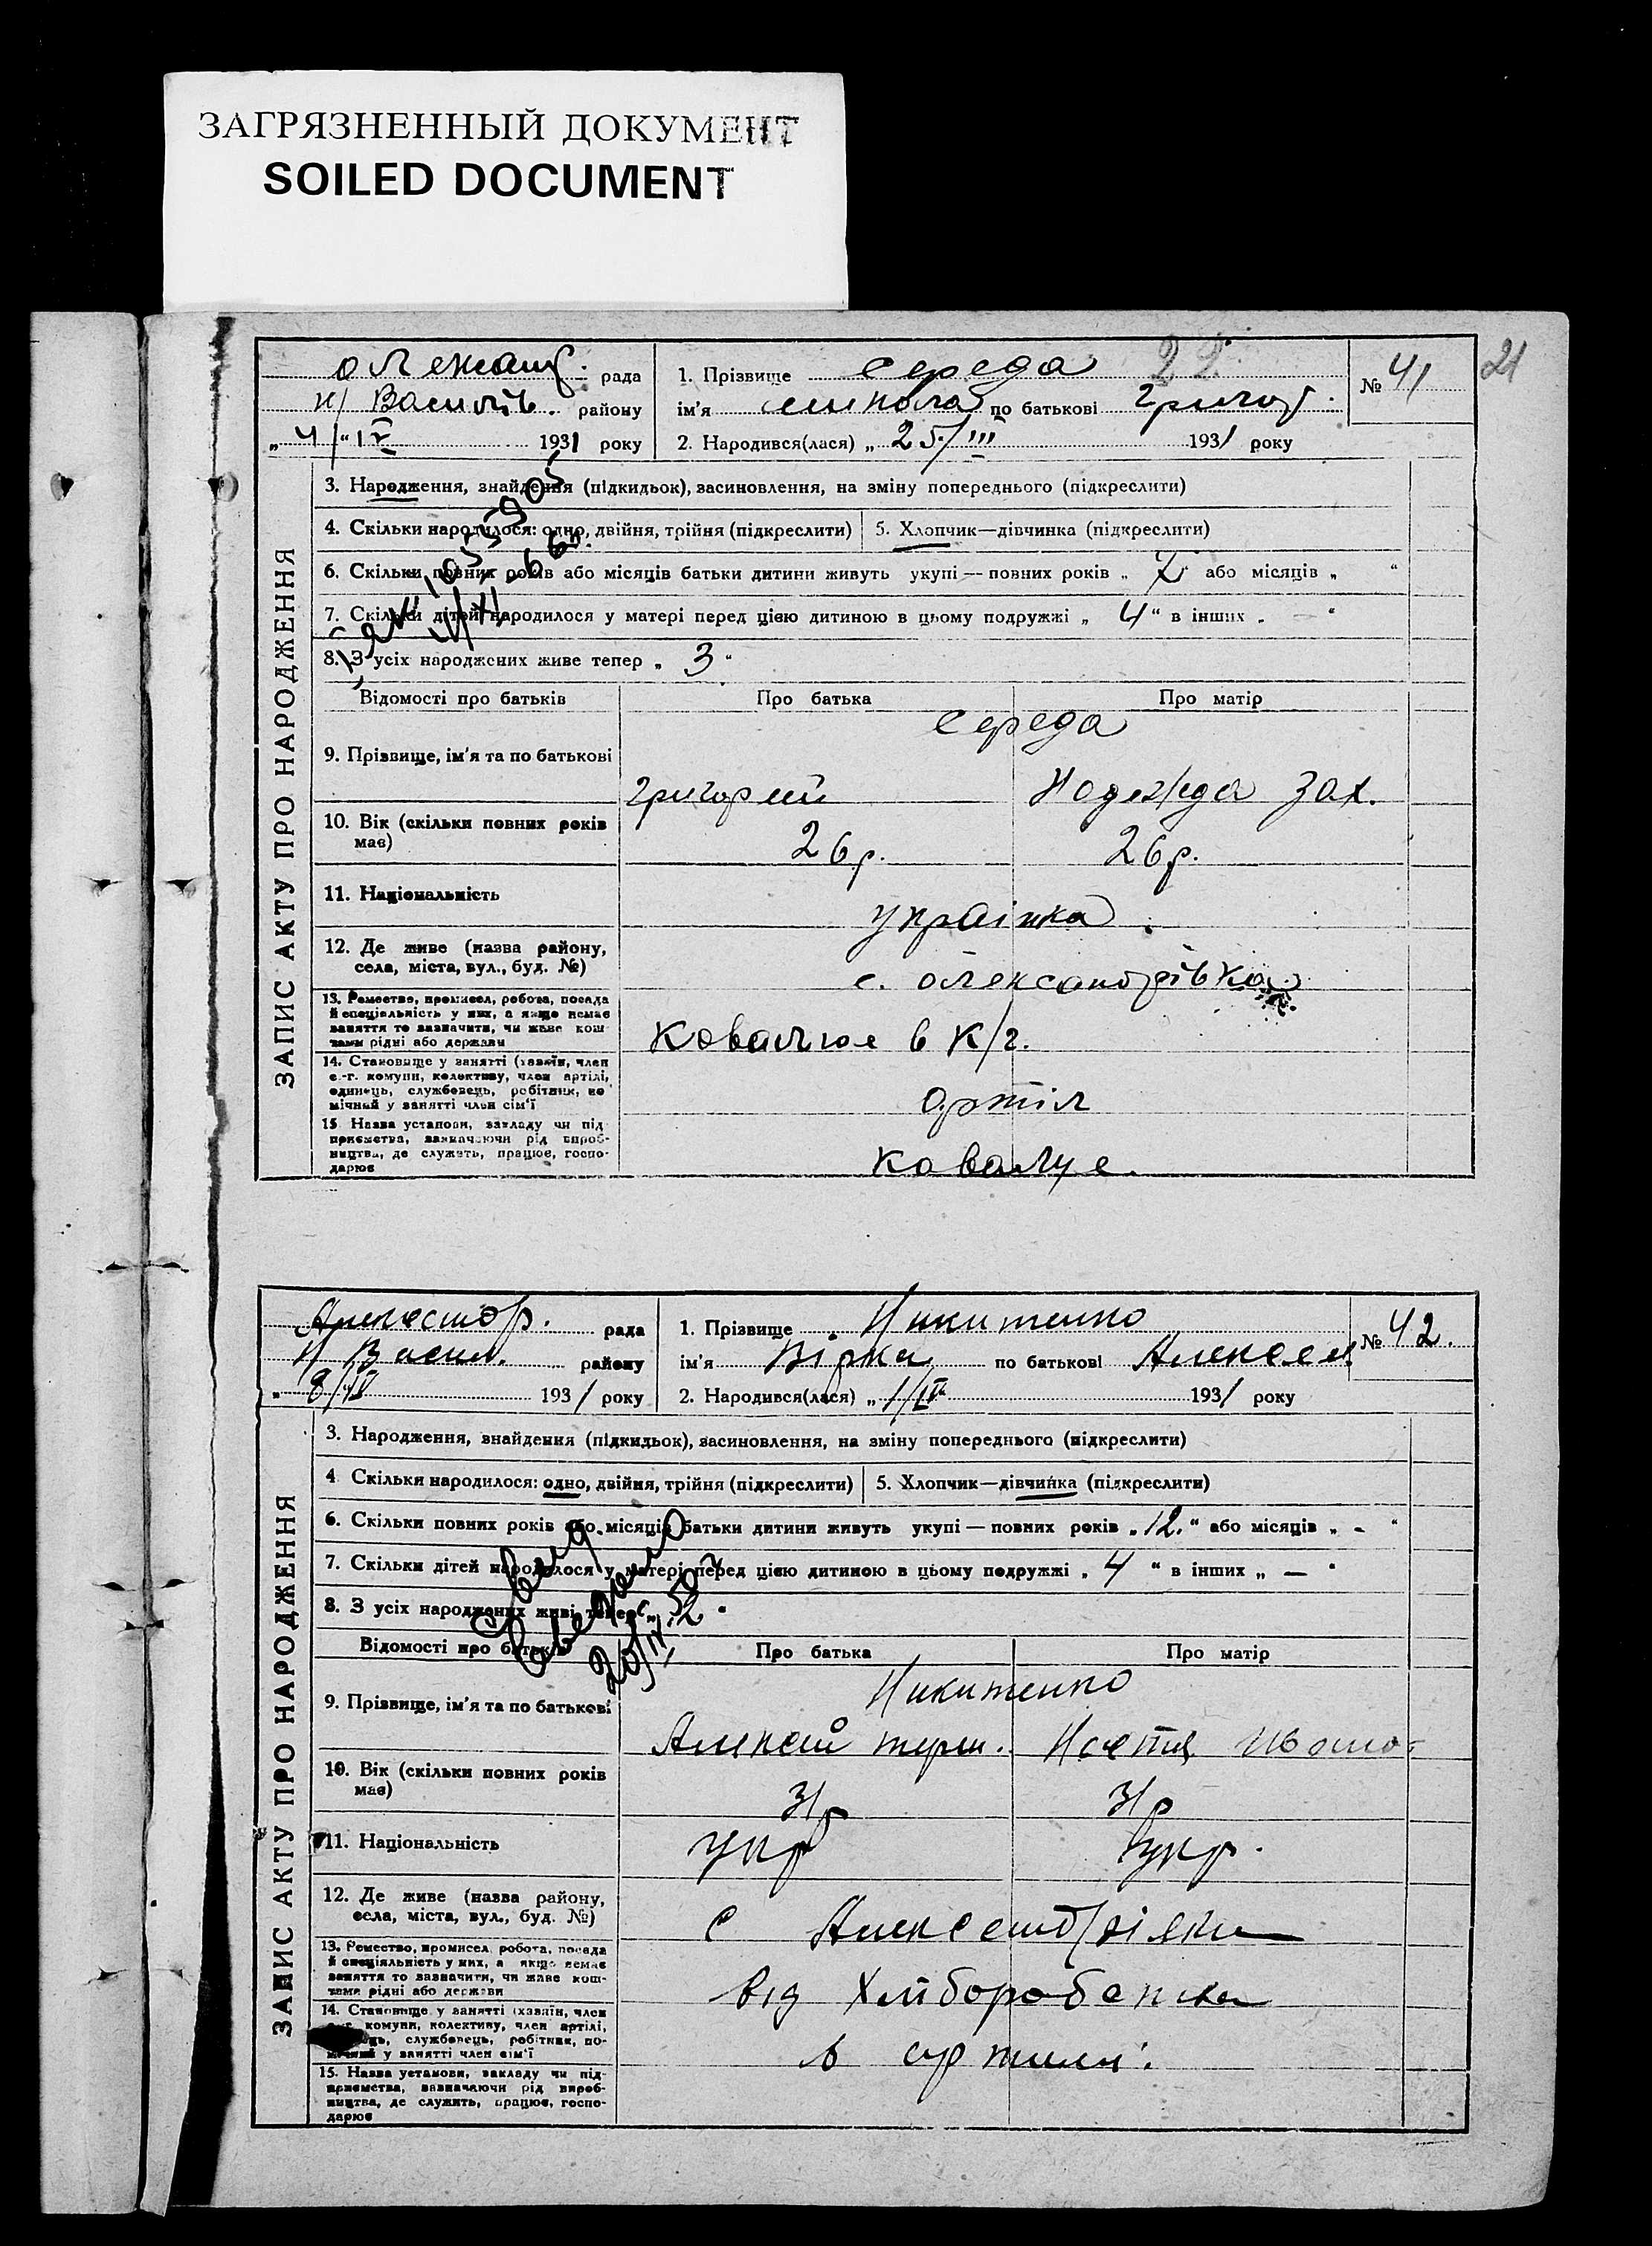 ЗАГРЯЗНЕННЫЙ ДОКУМЕНТ
SOILED DOCUMENT
21
22
рада
н/ Василів. району
„4/“ IV 1931 року
1. Прізвище Середа
№ 41
ім'я Микола по батькові Григор.
2. Народився(лася) „25/III 1931 року
ЗАПИС АКТУ ПРО НАРОДЖЕННЯ
3. Народження, знайдення (підкидьок), засиновлення, на зміну попереднього (підкреслити)
4. Скільки народилося: одно, двійня, трійня (підкреслити)
5. Хлопчик—дівчинка (підкреслити)
6. Скільки повних років або місяців батьки дитини живуть укупі — повних років „ 7 “ або місяців „ “
7. Скільки дітей народилося у матері перед цією дитиною в цьому подружжі „ 4 “ в інших „ — “
8. З усіх народжених живе тепер „ 3 “
Відомості про батьків
Про батька
Про матір
Середа
9. Прізвище, ім'я та по батькові
Григорий
Надежда Зах.
10. Вік (скільки повних років має)
26р.
26р.
11. Національність
українка.
12. Де живе (назва району,
села, міста, вул., буд. №)
с. Олександрівка
13. Ремество, промисел, робота, посада
й спеціяльність у них, а якщо немає
заняття то зазначити, чи живе кош-
тами рідні або держави
Ковалює в к/г.
14. Становище у занятті (хазяїн, член
с.-г. комуни, колективу, член артілі,
одинець, службовець, робітник, по-
мічний у занятті член сім'ї
артіл
15. Назва установи, закладу чи під-
приємства, зазначаючи рід вироб-
ництва, де служить, працює, госпо-
дарює
Ковалує.
рада
Н Васил. району
„ 8/IV 1931 року
1. Прізвище Никитенко
№ 42.
ім'я Вірка по батькові Алексеев.
2. Народився(лася) „1/IV 1931 року
ЗАПИС АКТУ ПРО НАРОДЖЕННЯ
3. Народження, знайдення (підкидьок), засиновлення, на зміну попереднього (підкреслити)
4. Скільки народилося: одно, двійня, трійня (підкреслити)
5. Хлопчик—дівчинка (підкреслити)
6. Скільки повних років або місяців батьки дитини живуть укупі — повних років „12.“ або місяців „ - “
7. Скільки дітей народилося у матері перед цією дитиною в цьому подружжі „ 4 “ в інших „ — “
8. З усіх народжених живі тепер „ 2 “
Відомості про батьків
Про батька
Про матір
Никитенко
9. Прізвище, ім'я та по батькові
Алексей
Настя Ивано-
10. Вік (скільки повних років має)
31р
31р
11. Національність
укр
укр.
12. Де живе (назва району,
села, міста, вул., буд. №)
с
13. Ремество, промисел, робота, посада
й спеціяльність у них, а якщо немає
заняття то зазначити, чи живе кош-
тами рідні або держави
від Хліборобства
14. Становище у занятті (хазяїн, член
с.-г. комуни, колективу, член артілі,
одинець, службовець, робітник, по-
мічний у занятті член сім'ї
в артили.
15. Назва установи, закладу чи під-
приємства, зазначаючи рід вироб-
ництва, де служить, працює, госпо-
дарює